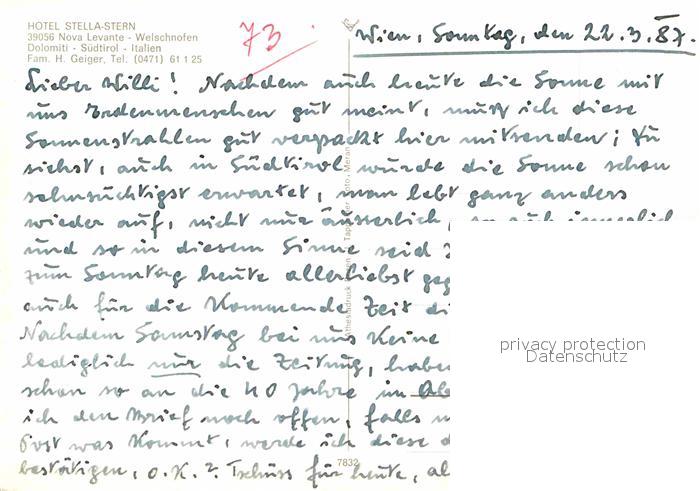 HOTEL STELLA-STERN
39056 Nova Levante - Welschnofen
Dolomiti - Südtirol - Italien
Fam. H. Geiger, Tel. (0471) 61 1 25
73
Wien, Sonntag, den 22.3.87.
Lieber Willi! Nachdem auch heute die Sonne mit
uns Erdenmenschen gut meint, muß ich diese
Sonnenstrahlen gut verpackt hier mitsenden; Du
siehst, auch in Südtirol wurde die Sonne schon
sehnsüchtigst erwartet, man lebt ganz anders
wieder auf, nicht nur äusserlich, so auch innerlich
und so in diesem Sinne seid
zum Sonntag heute allerliebst
auch für die kommende Zeit
Nachdem Samstag bei uns keine
lediglich nur die Zeitung,
schon so an die 40 Jahre im
ich den Brief noch offen, falls
Post was kommt, werde ich diese
bestätigen, o.k.? Tschüss für heute,
7832
privacy protection
Datenschutz